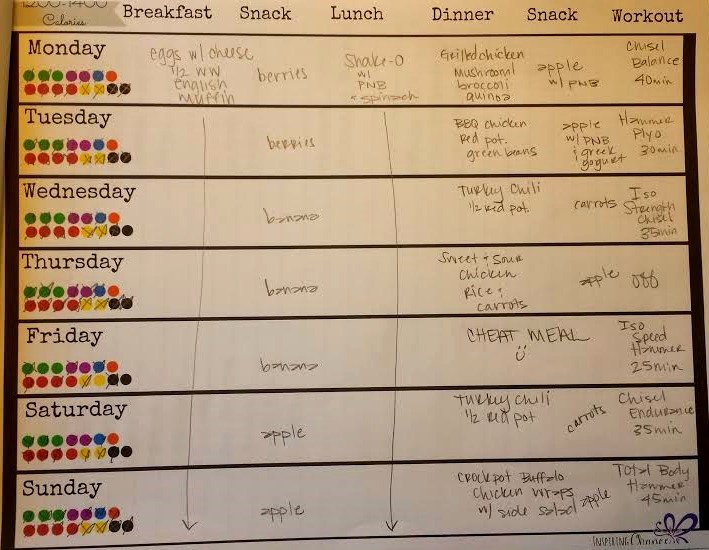 1200-1400
Calories
Breakfast Snack Lunch Dinner Snack Workout
Monday
eggs w/ cheese
1/2 WW
english
muffin
berries
Shake-O
w/
PNB
+ spinach
Grilled chicken
Mushroom/
broccoli
quinoa
apple
w/ PNB
Chisel
Balance
40min
Tuesday
berries
BBQ chicken
Red pot.
green beans
apple
w/ PNB
& greek
yogurt
Hammer
Plyo
30min
Wednesday
banana
Turkey Chili
1/2 red pot.
carrots
Iso
Strength
Chisel
35min
Thursday
banana
Sweet & Sour
Chicken
Rice &
carrots
apple
off
Friday
banana
CHEAT MEAL
Iso
Speed
Hammer
25min
Saturday
apple
Turkey Chili
1/2 red pot
carrots
Chisel
Endurance
35min
Sunday
apple
Crockpot Buffalo
Chicken wraps
w/ side salad
apple
Total Body
Hammer
45min